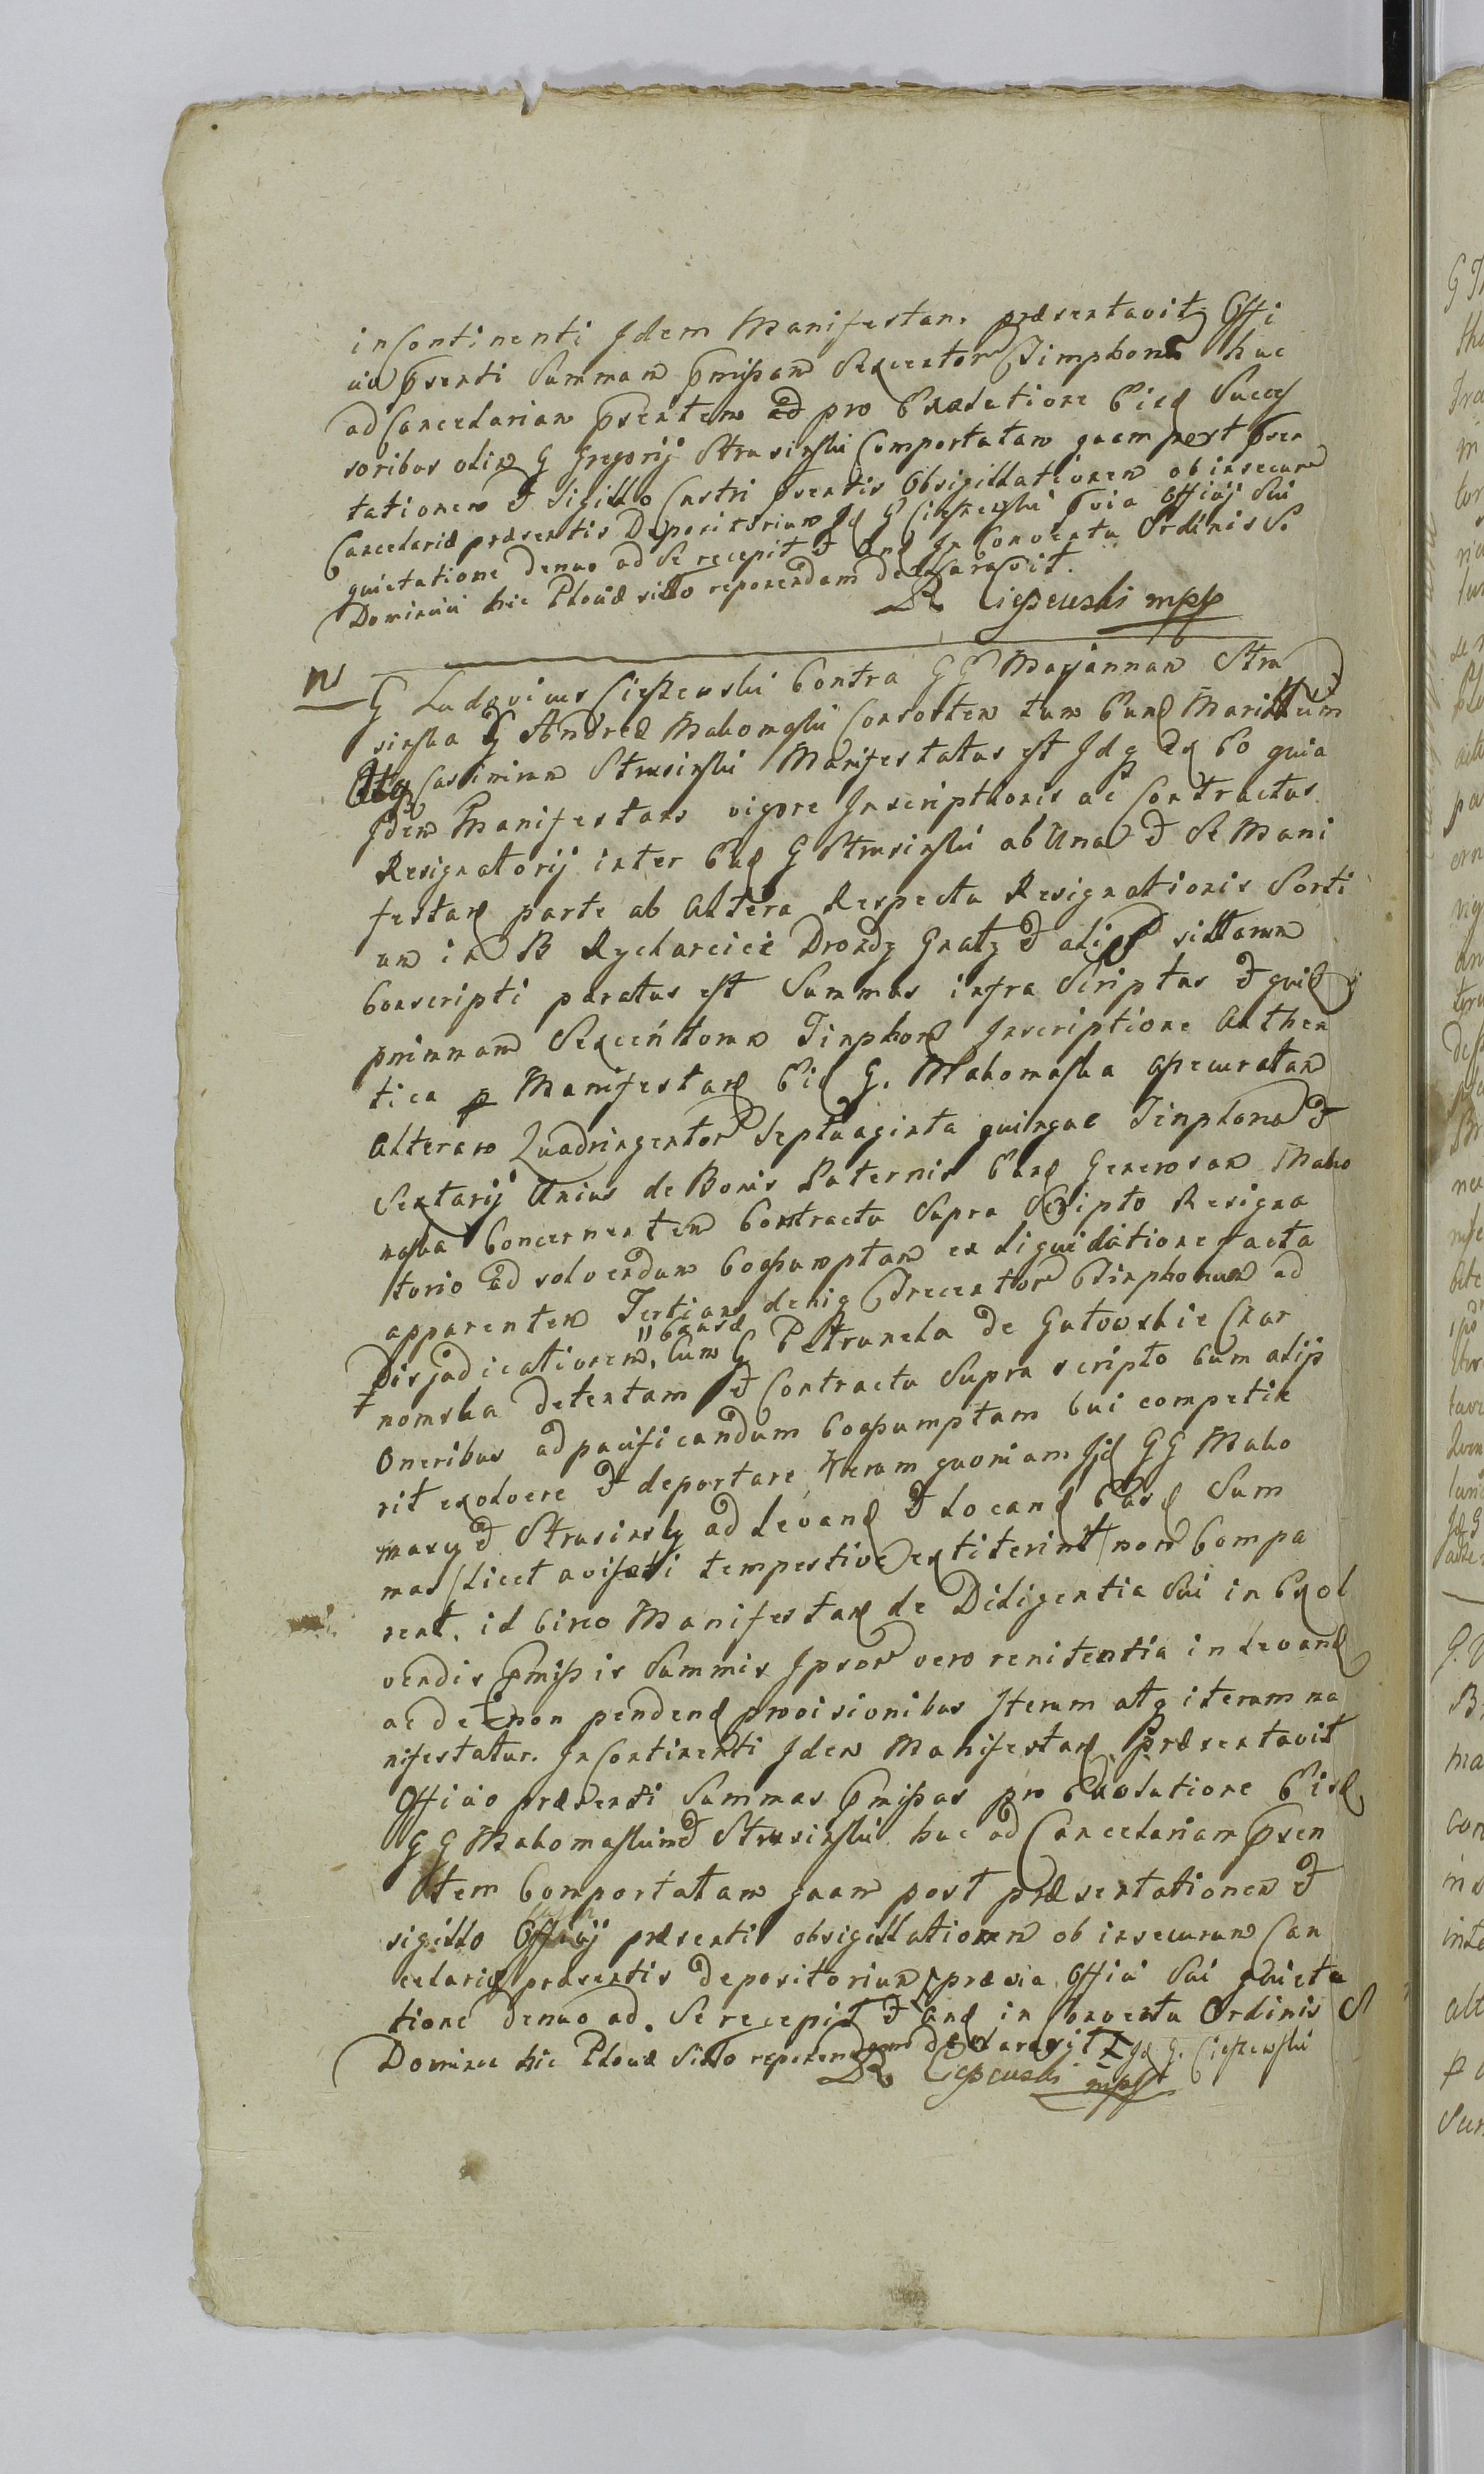 in Continenti Idem Manifestan. præsentavit Offi
cio pñsenti Summam pmissam Sexcentor Timphonũ huc
ad Cancelariam pñsentem ad pro Exolutione Eisd Succes
soribus olim G Gregorij Strusinski Comportatam quam post pñsen
tationem et Sigillo Castri pñsentis Obsigillationem ob insecurũ
Cancelariæ præsentis Depositorium Id G Cieszewski pvia Officij Sui
quietatione denuo ad Se recepit et Eand In Conventu Ordinis S
Dominici hic Plociæ sitto reponendam declaravit.
Cieszewski mpp
N
G Ludovicus Cieszewski Contra GG Maryannam Stru
sinska G Andreæ Makomaski Consortem tum Eund Marittum
Atq Casimirum Strusinski Manifestatus est Idq Ex Eo quia
Idem Manifestans vigore Inscriptionis ac Contractus
Resignatorij inter Eud G Strusinski ab Una et Se Mani
festan parte ab Altera Respectu Resignationis Sorti
um in B Rycharcice Drozdz Gnaty et alijs sittarum
Conscripti paratus est Summas infra Scriptas et quid
primam Sexcentorum Tinphon Inscriptione Authen
tica p Manifestan Eid G. Makomaska assecuratam
Alteram Quadringentor Septuaginta quinque Tinphonũ et
Sextarij Unius de Bonis Paternis Eand Generosam Mako
maska Concernentem Contractu Supra Scripto Resigna
torio ad solvendum Coassumptam ex liquidatione facta
apparentem Tertiam deniq Trecentor Tinphonum ad
" Causæ
Disjudicationem, Cum G Petrunela de Gutowskie Czar
nomska detentam et Contractu Supra scripto Cum alijs
Oneribus ad pacificandum Coassumptam Cui competie
rit exolvere et deportare, Verum quoniam Iid GG Mako
mascy et Strusinscy ad levand et Locand Easd Sum
mas /Licet avisati tempestive extiterint/ non Compa
rent, id Circo Manifestans de Diligentia Sui in Exol
vendis pmissis Summis Ipsor vero renitentia in levand
ac de non pendend provisionibus Iterum atq iterum ma
nifestatur. In Continenti Idem Manifestan Præsentavit
Officio præsenti Summas pmissas pro Exolutione Eisd
GG Makomaskim et Strusinski huc ad Cancelariam pñsen
tem Comportatam quam post præsentationem et
sigillo Officij præsenti obsigillationem ob insecurum Can
celariæ præsentis depositorium prævia Officii Sui quieta
tione denuo ad Se recepit et Eand in Conventu Ordinis S
Dominici hic Plociæ Sitto reponendam declaravit Id G. Cieszewski
Cieszewski mpp